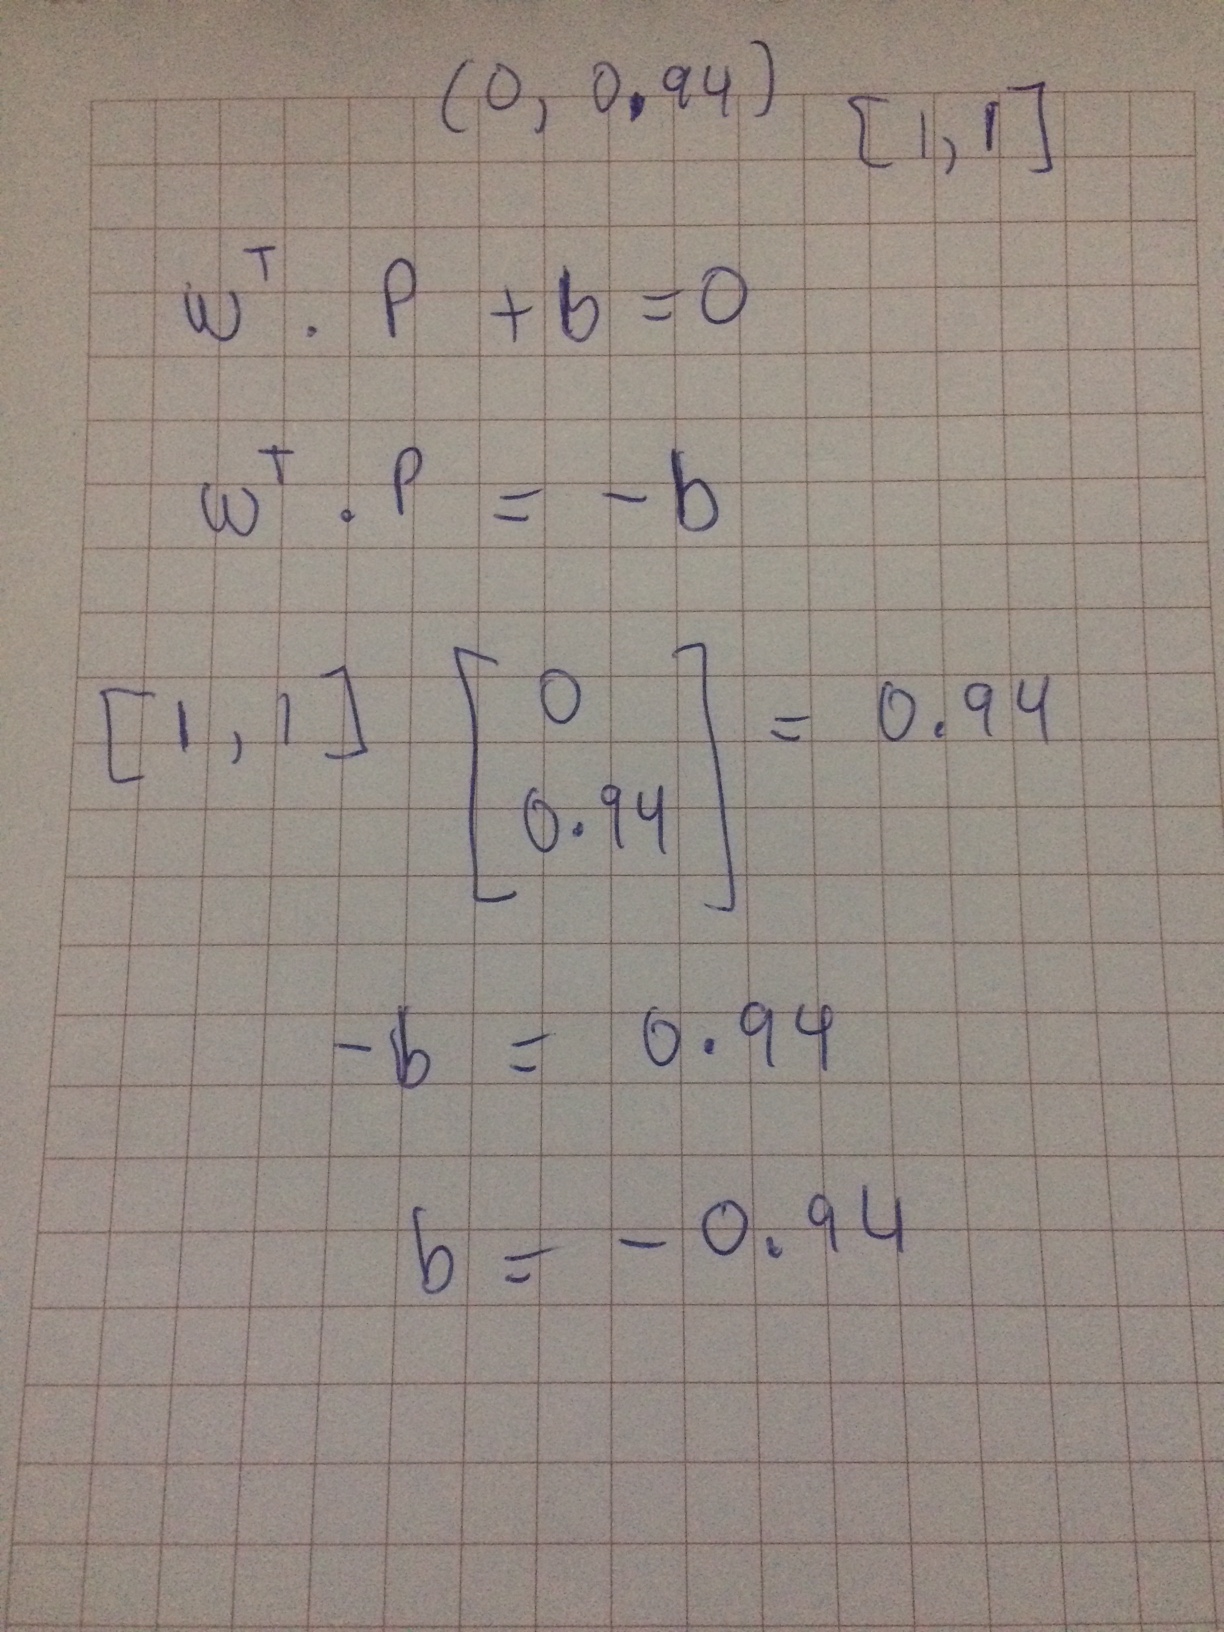 (0, 0.94) [1, 1]
w^T . P + b = 0
w^T . P = - b
[1, 1] [0 0.94] = 0.94
-b = 0.94
b = - 0.94